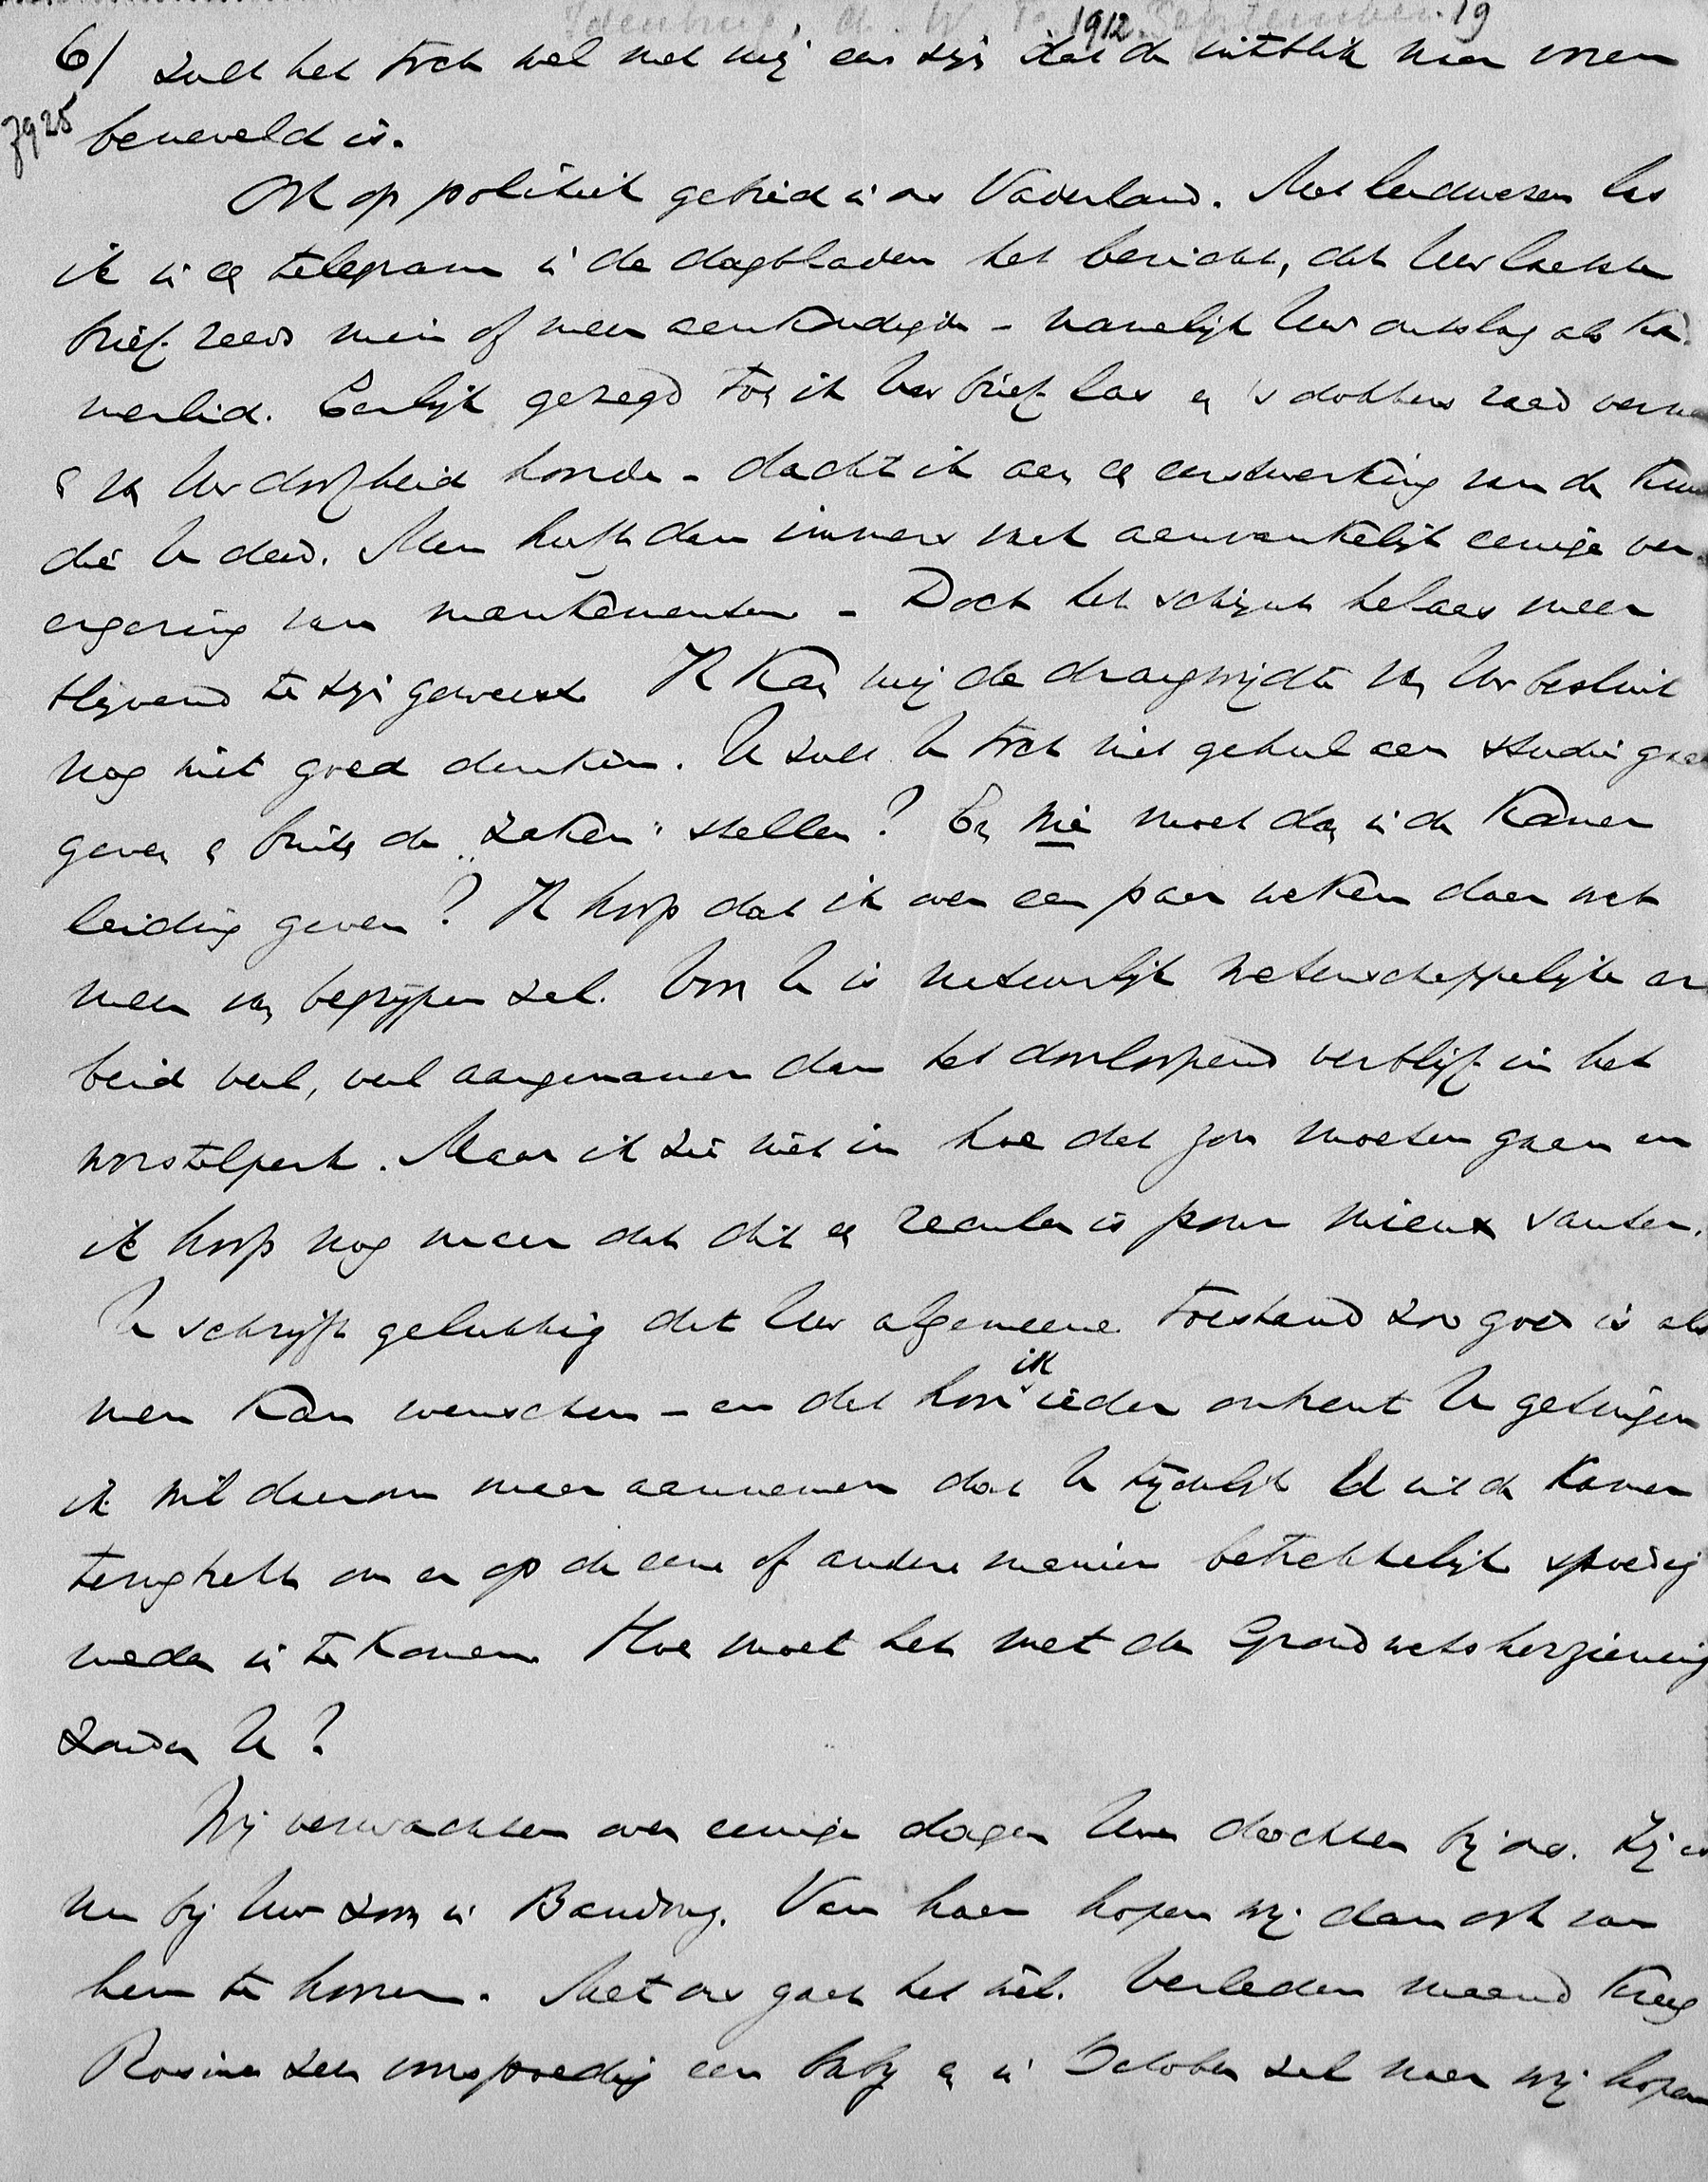 Idenburg, A. W. F. 1912 September 19
6/ zult het toch wel met mij eens zijn dat de uitblik naar voren
7925 beneveld is.
Ook op politiek gebied in ons Vaderland. Met leedwezen las
ik in een telegram in de dagbladen het bericht, dat Uw laatste
brief reeds min of meer aankondigde – namelijk Uw ontslag als Ka-
merlid. Eerlijk gezegd toen ik Uw brief las en 's dokters raad vernam
en van Uw doofheid hoorde – dacht ik aan een eerstwerking van de kuur
die U deed. Men heeft dan immers met aanvankelijk eenige ver-
ergering van mankementen – Doch het schijnt helaas meer
blijvend te zijn geweest Ik kan mij de draagwijdte van Uw besluit
nog niet goed denken. U zult U toch niet geheel aan studie gaan
geven en buiten de „zaken" stellen? En wie moet dan in de Kamer
leiding geven? Ik hoop dat ik over een paar weken daar wat
meer van begrijpen zal. Voor U is natuurlijk wetenschappelijke ar
beid veel, veel aangenamer dan het doorloopend verblijf in het
worstelperk. Maar ik zie niet in hoe dat zou moeten gaan en
ik hoop nog maar dat dit een reculer is pour mieux sauter.
U schrijft gelukkig dat Uw algemeene toestand zoo goed is als
men kan wenschen – en dat hoor ik ieder omtrent U getuigen
ik wil daarom maar aannemen dat U tijdelijk U uit de Kamer
terugtrekt om er op de eene of andere manier betrekkelijk spoedig
weder in te komen. Hoe moet het met de Grondwetsherziening
zonder U?
Wij verwachten over eenige dagen Uwe dochter bij ons. Zij is
nu bij Uw zoon in Bandong. Van haar hopen wij dan ook van
hem te hooren. Met ons gaat het wel. Verleden maand kreeg
Rosina zeer voorspoedig een baby en in October zal naar wij hopen